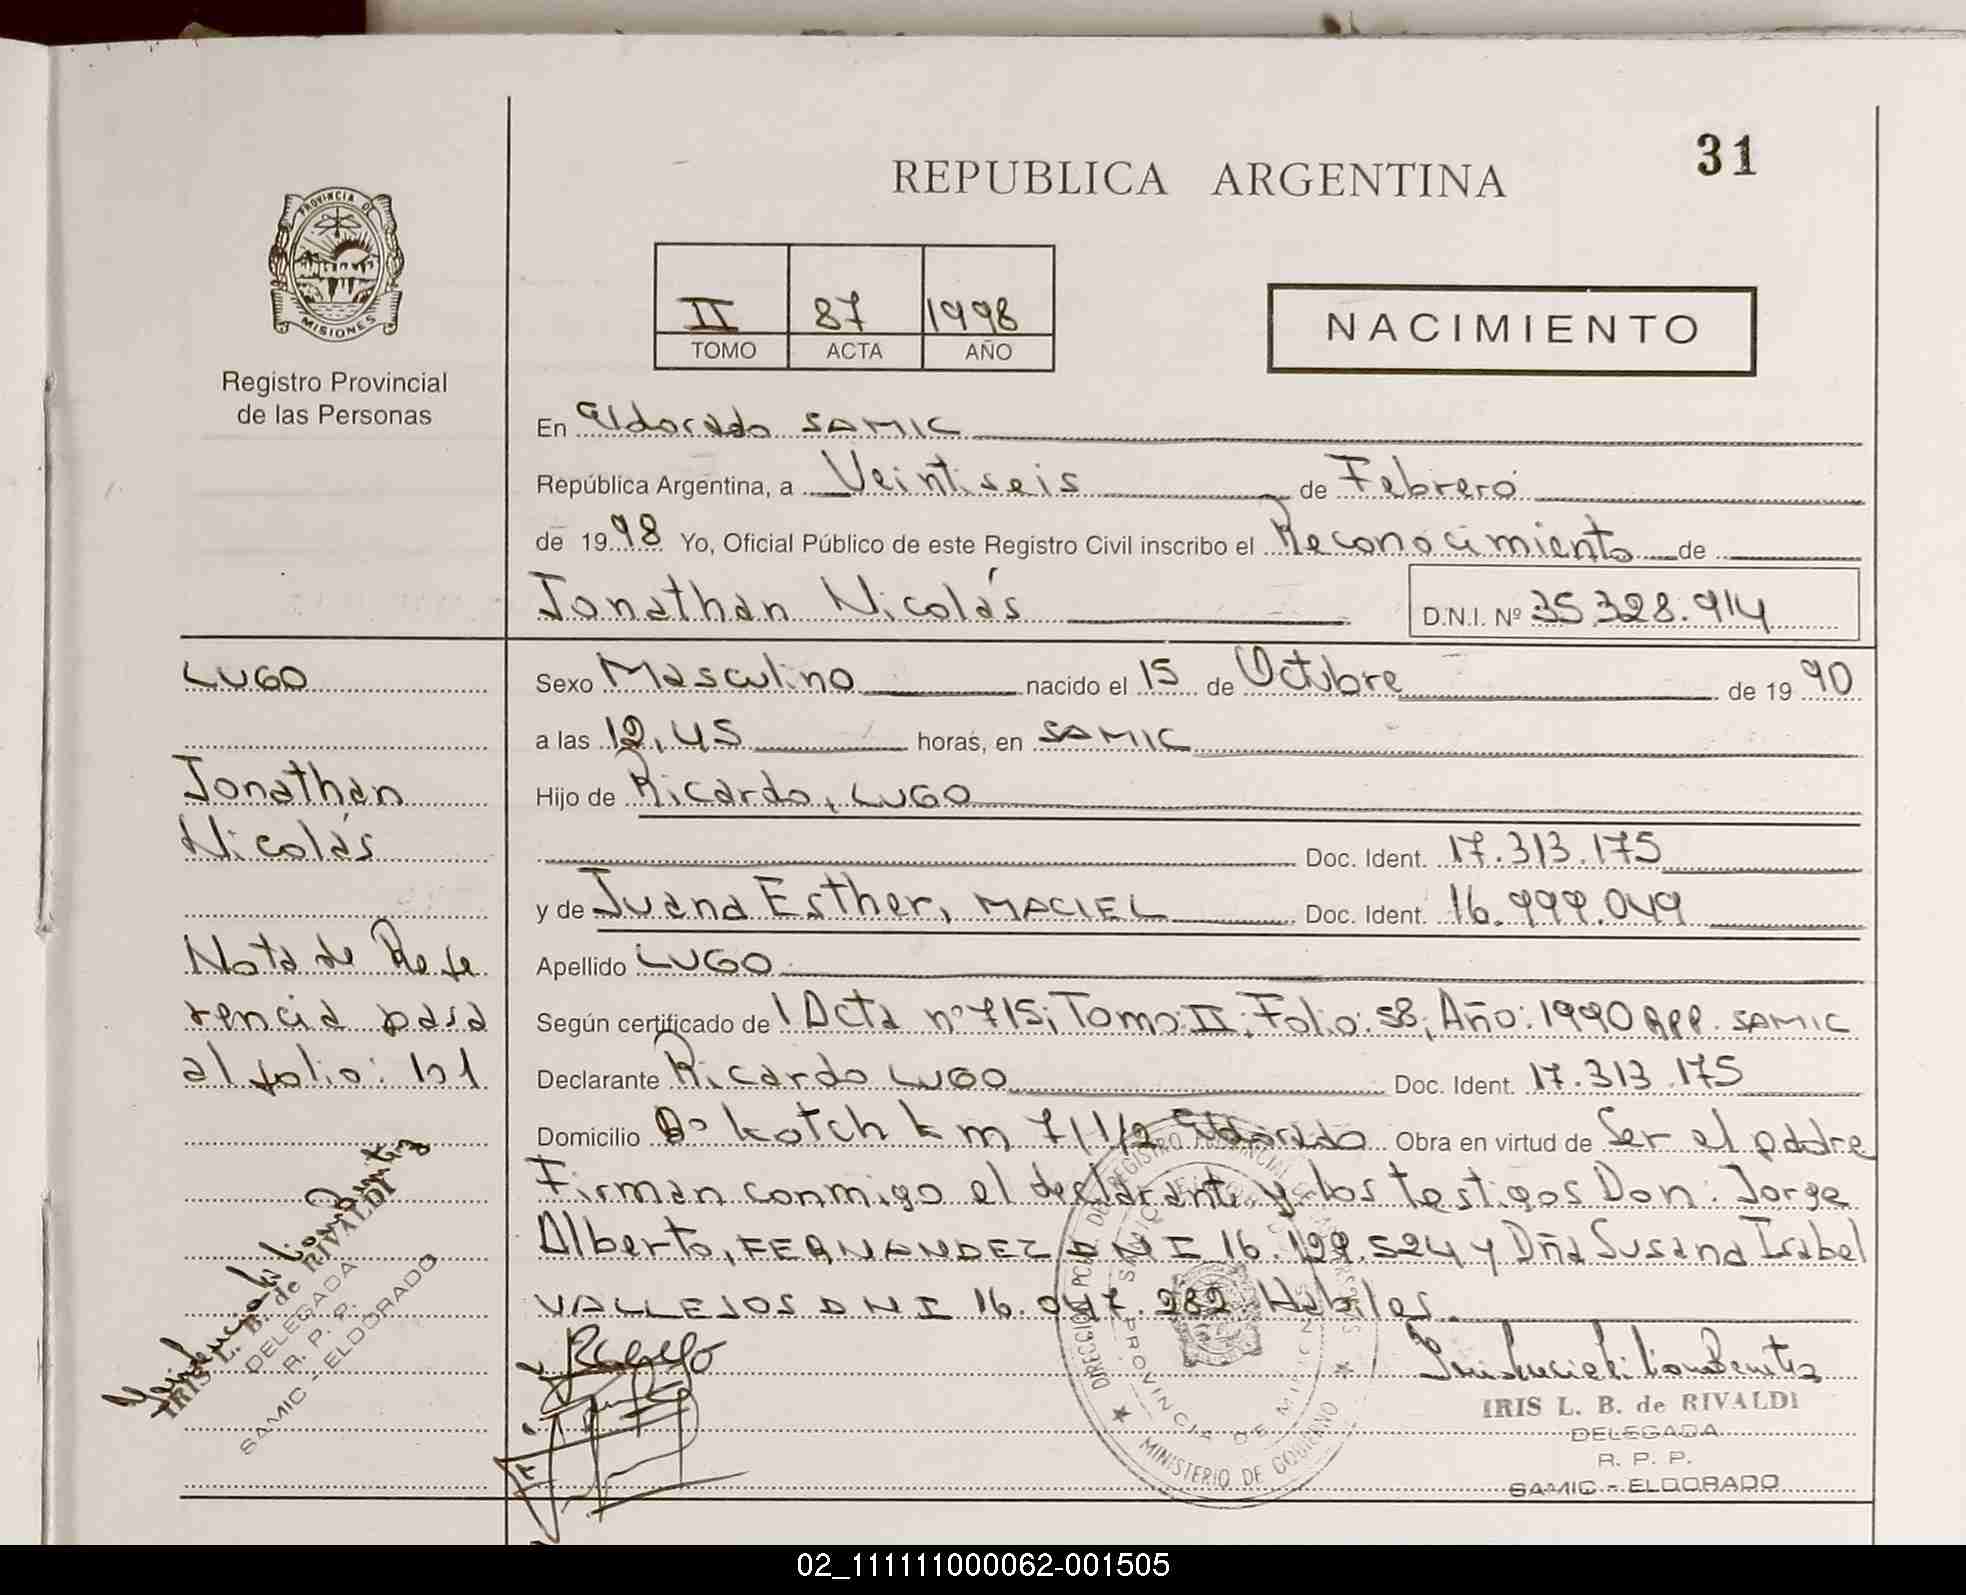 31
REPUBLICA ARGENTINA
PROVINCIA DE
MISIONES
Registro Provincial
de las Personas
II 87 1998
TOMO ACTA AÑO
NACIMIENTO
En Eldorado SAMIC
República Argentina, a Veintiseis de Febrero
de 1998 Yo, Oficial Público de este Registro Civil inscribo el Reconocimiento de
Jonathan Nicolás D.N.I. Nº 35.328.914
LUGO
Jonathan
Nicolás
Nota de Refe
rencia pasa
al folio: 101
Sexo Masculino nacido el 15 de Octubre de 1990
a las 12,45 horas, en SAMIC
Hijo de Ricardo, LUGO
Doc. Ident. 17.313.175
y de Juana Esther, MACIEL Doc. Ident. 16.999.049
Apellido LUGO
Según certificado de 1 Acta nº 715; Tomo II; Folio: 58; Año: 1990 RPP. SAMIC
Declarante Ricardo LUGO Doc. Ident. 17.313.175
Domicilio Bº Kotch km 7 1/2 Eldorado Obra en virtud de Ser el padre
Firman conmigo el declarante y los testigos Don: Jorge
Alberto, FERNANDEZ DNI 16.129.524 y Dña Susana Isabel
VALLEJOS DNI 16.047.282 Habiles.
IRIS L. B. de RIVALDI
DELEGADA
R. P. P.
SAMIC - ELDORADO
IRIS L. B. de RIVALDI
DELEGADA
R. P. P.
SAMIC - ELDORADO
PROVINCIA DE MISIONES
MINISTERIO DE GOBIERNO
02_111111000062-001505